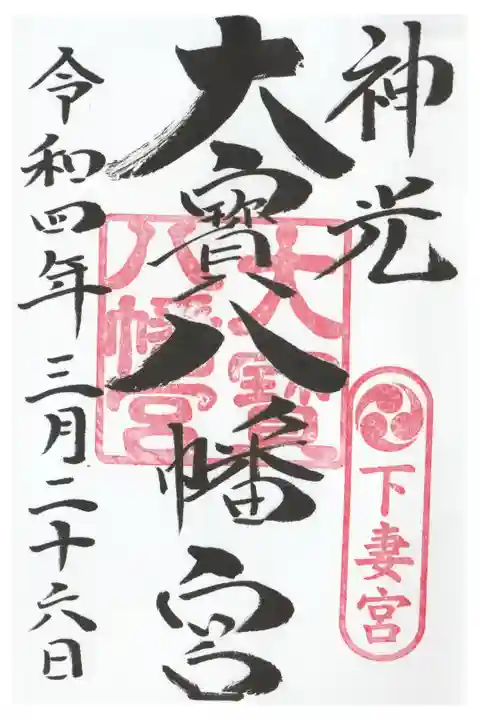 神光
大寳八幡宮
令和四年三月二十六日
大寳
八幡宮
下妻宮